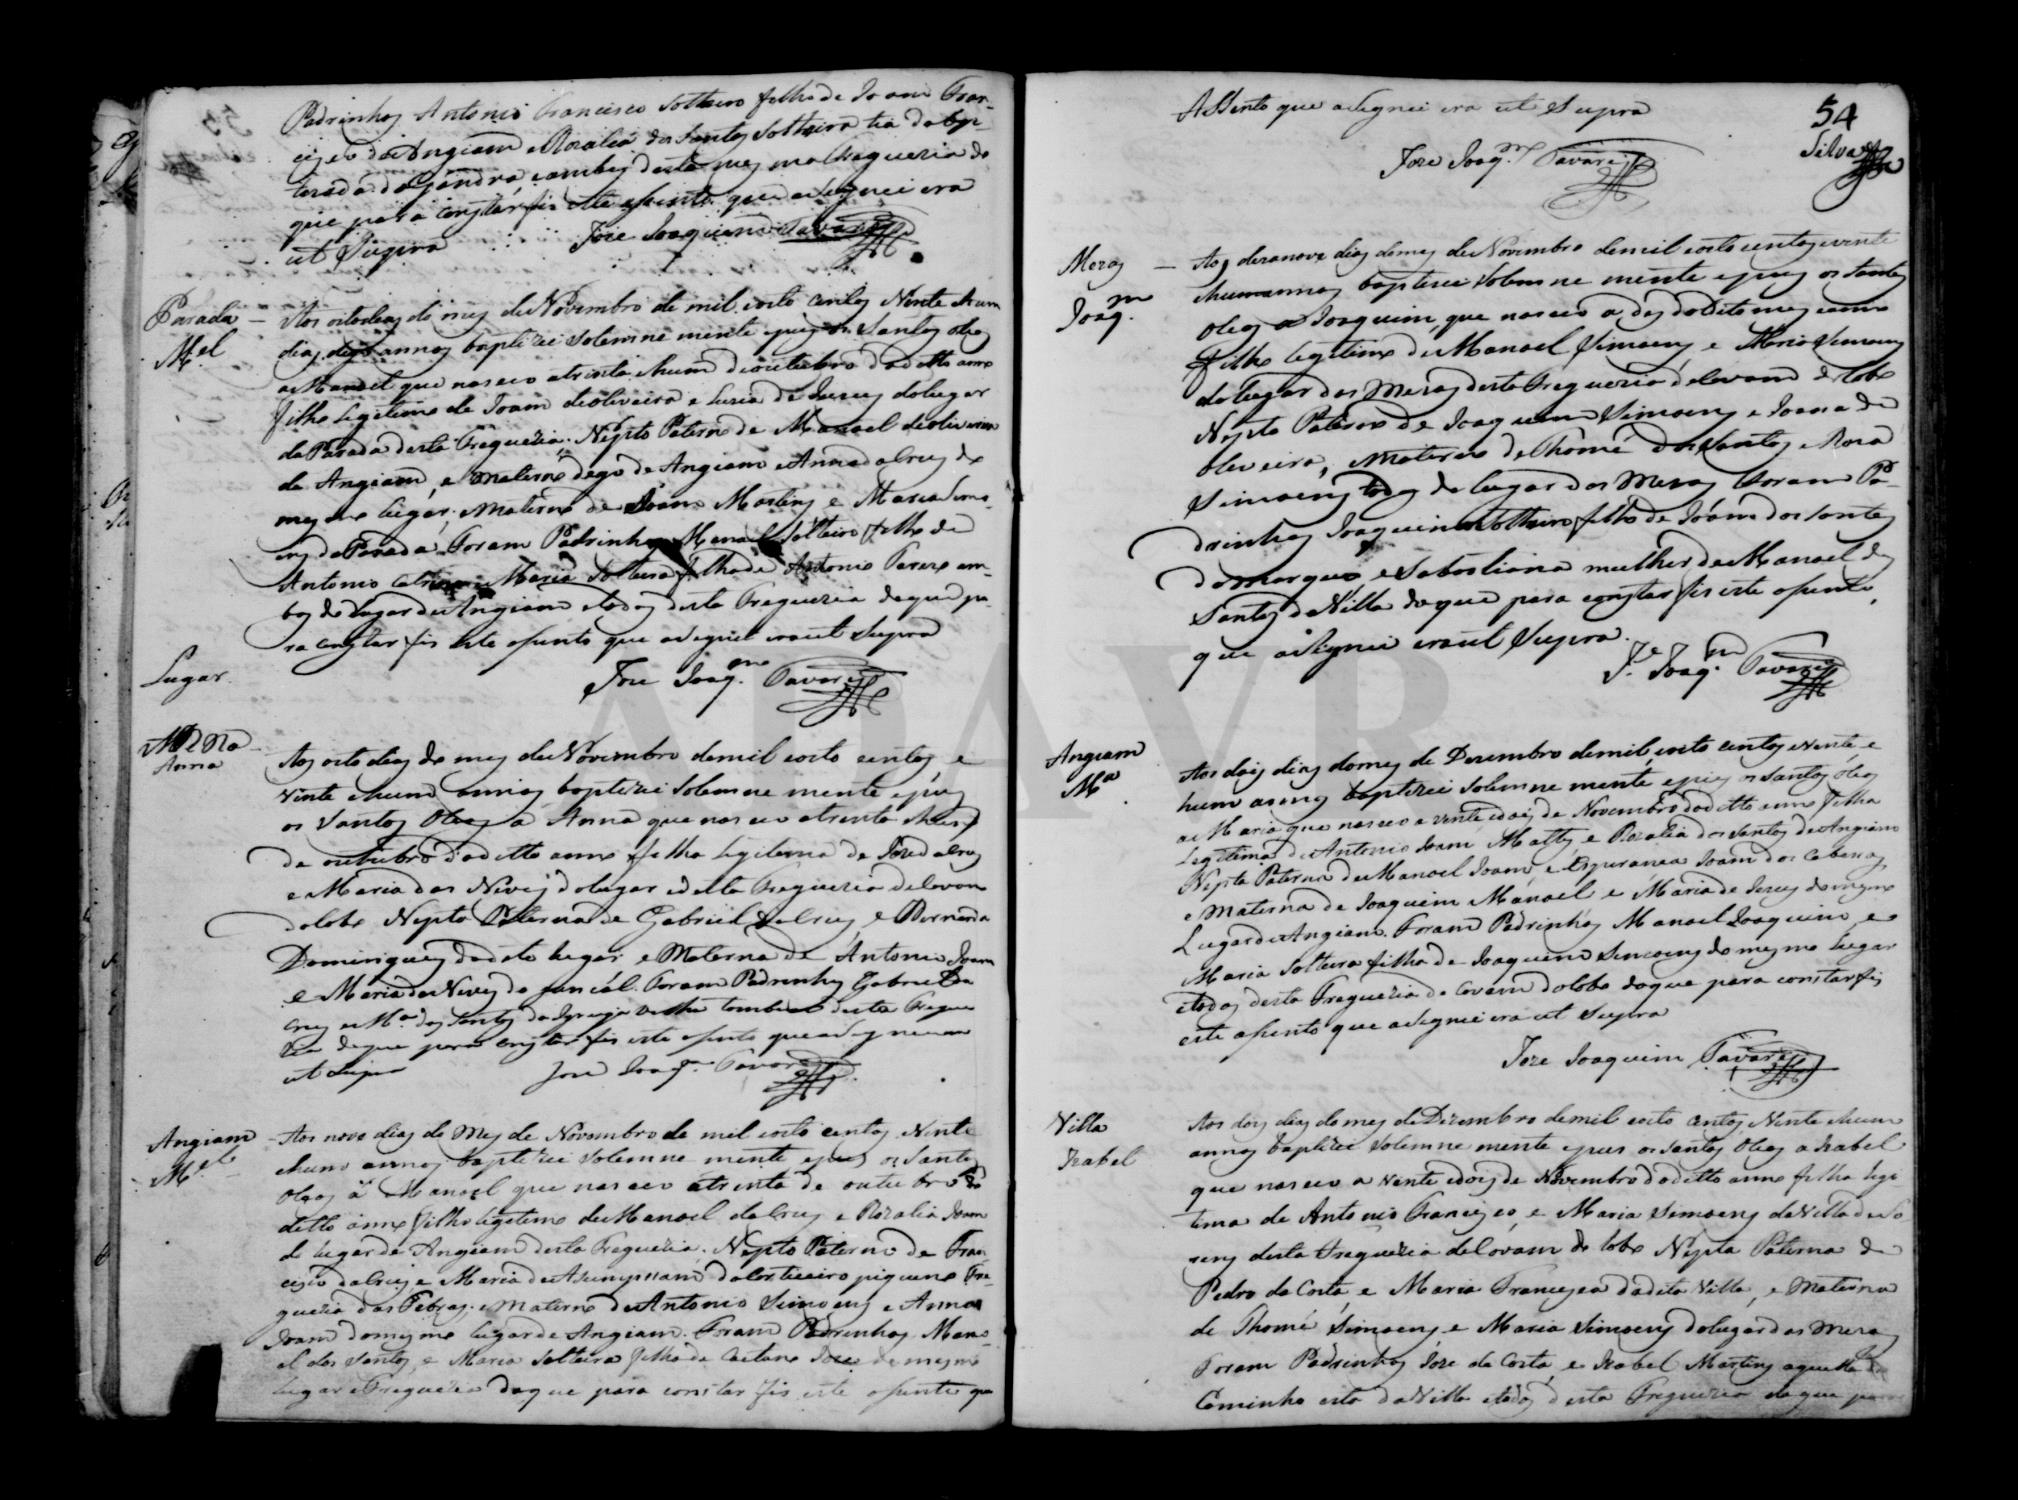 Padrinhos Antonio Francisco Solteiro filho de Joam Fran-
cisco de Angiam e Rozalia dos Santos Solteira tia da bap-
tizada da Gandra, e ambos desta mesma Freguezia do
que para constar fis este asento que asignei era
ut Supra
Joze Joaquim Tavares
Parada
M.el
Aos oito dias do mes de Novembro de mil oito centos Vinte e hum
annos baptizei Solemne mente e pus os Santos oleos
a Manoel que nasceo a trinta e hum de outubro do ditto anno
filho legitimo de Joam de oliveira e Luzia de Jezus do lugar
da Parada desta Freguezia. Nepto Paterno de Manoel de oliveira
de Angiam, e materno digo de Angiam e Anna da Cruz do
mesmo lugar, e Materno de Joam Martins e Maria Simo-
ens da Parada. Foram Padrinhos Manoel Solteiro filho de
Antonio e Maria Solteira filha de Antonio am-
bos do lugar de Angiam e todos desta Freguezia do que pa-
ra constar fis este asento que asignei era ut Supra
Joze Joaq.m Tavares
Lugar
Anna
Aos oito dias do mes de Novembro de mil oito centos, e
vinte e hum annos baptizei Solemne mente e pus
os Santos Oleos a Anna que nasceo a trinta e hum
de outubro do ditto anno filha legitima de Joze da Cruz
e Maria das Neves do lugar e desta Freguezia de Covam
do lobo Nepta Paterna de Gabriel da Cruz, e Bernarda
Domingues do dito lugar e Materna de Antonio Joam
e Maria das Neves do. Foram Padrinhos Gabriel da
Cruz e M.a dos Santos da Igreja Velha tambem desta Fregue
zia do que para constar fis este asento que asignei era
ut Supra
Joze Joaq.m Tavares
Angiam
M.el
Aos nove dias do Mes de Novembro de mil oito centos Vinte
e hum annos baptizei Solemne mente e pus os Santos
Oleos a Manoel que nasceo a trinta de outubro do
ditto anno filho legitimo de Manoel da Cruz e Rozalia Joam
do lugar de Angiam desta Freguezia. Nepto Paterno de Fran
cisco da Cruz e Maria de Asumpssam do Corticeiro piqueno Fre-
guezia das Febras, e Materno de Antonio Simoens e Anna
Joam do mesmo lugar de Angiam. Foram Padrinhos Mano-
el dos Santos, e Maria Solteira filha de Caetano Joze do mesmo
lugar e Freguezia do que para constar fis este asento que
54
Silva
Assento que asignei era ut Supra
Joze Joaq.m Tavares
Mezas
Joaq.m
Aos dezanove dias do mes de Novembro de mil oito centos e vinte
e hum annos baptizei Solemne mente e pus os Santos
oleos a Joaquim, que nasceo a des do dito mes e anno
Filho legitimo de Manoel Simoens, e Maria Simoens
do lugar das Mezas desta Freguezia de Covam do lobo
Nepto Paterno de Joaquim Simoens e Joana de
oliveira, e Materno de Thomé dos Santos e Roza
Simoens todos do lugar das Mezas Foram Pa-
drinhos Joaquim Solteiro filho de Joam dos Santos
do marques, e Sabastiana mulher de Manoel dos
Santos da Villa do que para constar fis este asento,
que asignei era ut Supra.
J.e Joaq.m Tavares
Angiam
M.a
Aos dois dias do mes de Dezembro de mil, oito centos e Vinte, e
hum annos baptizei Solemne mente, e pus os Santos oleos
a Maria, que nasceo a vinte e dois de Novembro do ditto anno filha
Legitima de Antonio Joam Matto, e Rozalia dos Santos de Angiam
Nepta Paterna de Manoel Joam, e Esperança Joam dos Cabeços,
e Materna de Joaquim Manoel e Maria de Jezus do mesmo
Lugar de Angiam. Foram Padrinhos Manoel Joaquim, e
Maria Solteira filha de Joaquim Simoens do mesmo lugar
e todos desta Freguezia de Covam do lobo do que para constar fis
este asento que asignei era ut Supra
Joze Joaquim Tavares
Villa
Izabel
Aos dois dias do mes de Dezembro de mil oito Centos Vinte e hum
annos baptizei Solemne mente e pus os Santos Oleos a Izabel
que nasceo a Vinte e dois de Novembro do ditto anno filha legi
tima de Antonio Francisco, e Maria Simoens da Villa de So
rens desta Freguezia de Covam do lobo Nepta Paterna de
Pedro da Costa, e Maria Francisca da dita Villa, e Materna
de Thomé Simoens, e Maria Simoens do lugar das Mezas
Foram Padrinhos Joze da Costa, e Izabel Martins aquelle do
Caminho esta da Villa e todos desta Freguezia do que para
ADAVR